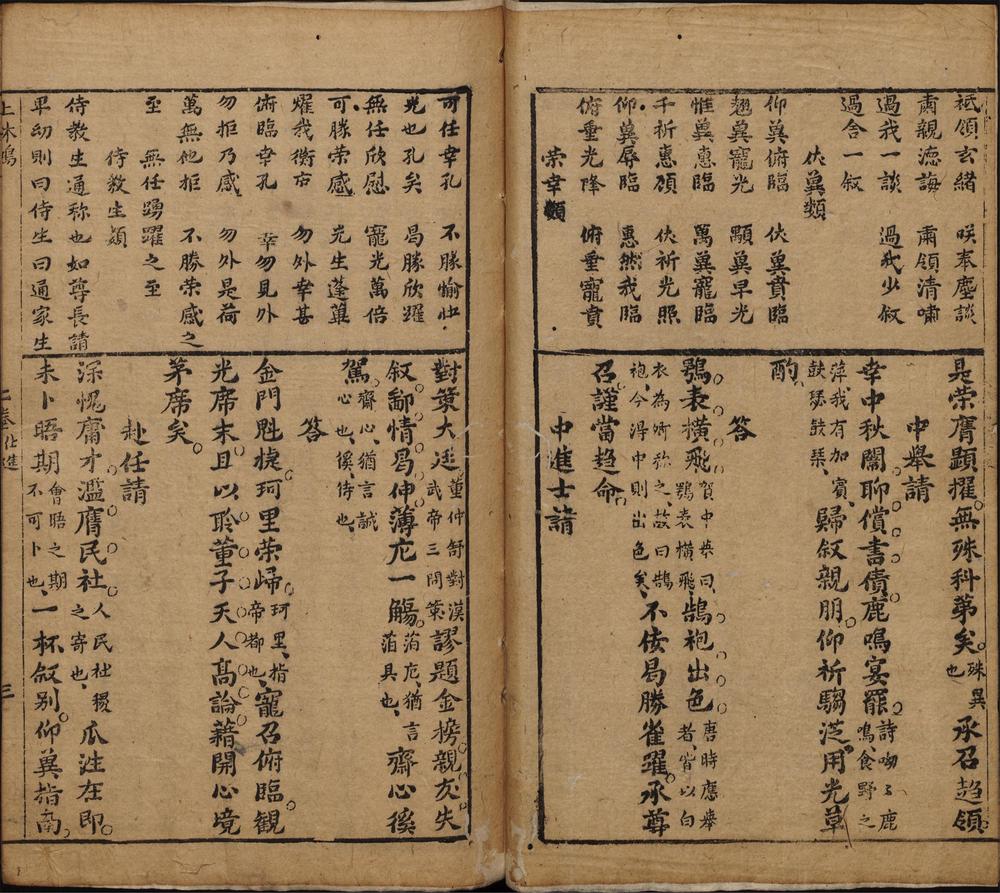 祗領玄緒　咲奉塵談
肅親德誨　肅領清嘯
過我一談　過我少叙
過舍一叙
伏冀類
仰冀俯臨　伏冀賁臨
翹冀寵光　顯冀早光
惟冀惠臨　萬冀寵臨
千祈惠顧　伏祈光照
仰冀辱臨　惠然我臨
俯垂光降　俯垂寵賁
荣幸類
是荣膺顕擢。無殊科第矣。殊異也承召趨領
中舉請
幸中秋闈聊償書債。鹿鳴宴罷。詩呦呦鹿鳴、食野之
萍、我有加賓、鼓瑟鼓琹、歸叙親朋。仰祈騶淩。用光草
酌。
答
鶚表橫飛。賀中㳟曰、鶚表橫飛、鵠袍出色。唐時應舉者、皆以白
衣為所称之、故曰鵠袍、今淂中則出色矣、不佞曷勝雀躍。承尊
召謹當趋命。
中進士請
可任幸孔　不勝愉快
光也孔矣　曷勝欣躍
無任欣慰　寵光萬倍
可勝荣感　光生蓬蓽
燿我衡宇　勿外幸甚
俯臨幸孔　幸勿見外
勿拒乃感　勿外是荷
萬無他拒　不勝荣感之
至　無任踴躍之至
侍教生類
侍教生通称也如尊長請
卑幼則曰侍生曰通家生
對策大廷。董仲舒對漢武帝三問策謬題金榜。親友失
叙。鄙情。曷伸薄卮一觴。滔卮、猶言滔具也、齋心徯
駕。齋心、猶言誠心也、徯、侍也、
答
金門魁捷。珂里荣歸。珂里、指帝都也、寵召俯臨。観
光席末。且以聆董子天人高論。藉開心境
茅席矣。
赴任請
深愧庸才。濫膺民社。人民社稷之寄也、瓜泩在即。
未卜晤期會晤之期不可卜也、一杯叙别。仰冀指南。
二卷仕進
三